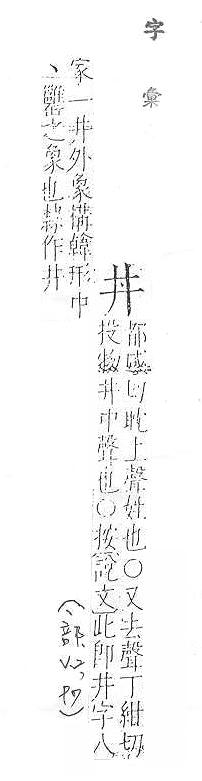 字彙
丼
都感切耽上聲姓也○又去聲丁紺切
投物井中聲也○按說文此即井字八
家一井外象構韓形中
丶罋之象也隸作井
(丶部